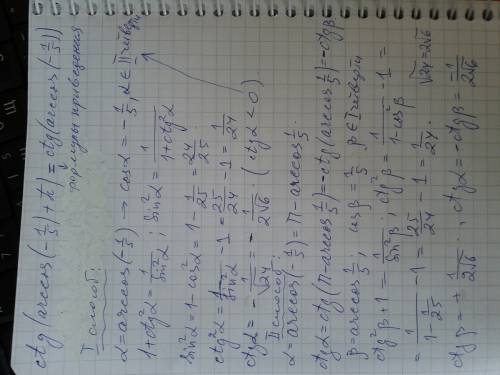 ctg(arccos(-1/5)+π) = ctg(arccos(-1/5))
формулы приведения
I способ:
α=arccos(-1/5) → cosα=-1/5, α∈II четверти
1+ctg²α=1/sin²α ; sin²α=1/(1+ctg²α)
sin²α=1-cos²α=1-1/25=24/25
ctg²α=1/sin²α-1=25/24-1=1/24
ctgα=-1/√24=-1/2√6 (ctgα<0)
II способ:
α=arccos(-1/5)=π-arccos1/5.
ctgα=ctg(π-arccos1/5)=-ctg(arccos1/5)=-ctgβ
β=arccos1/5, cosβ=1/5 β∈I четверти
ctg²β+1=1/sin²β ; ctg²β=1/(1-cos²β)-1=
=1/(1-1/25)-1=25/24-1=1/24 √24=2√6
ctgβ=+1/2√6 ; ctgα=-ctgβ=-1/2√6